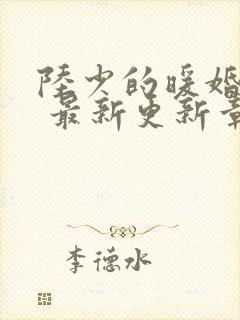 陆少的暖婚
最新更新章
李德水